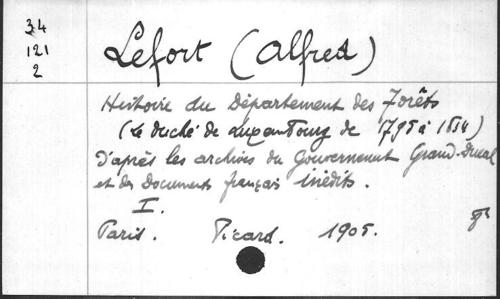 34
121
2
Lefort (Alfred)
Histoire du Département des Forêts
(Le duché de Luxembourg de 1795 à 1814)
d'après les archives du Gouvernement Grand-Ducal
et des Documents français inédits.
I.
Paris. Picard. 1905.